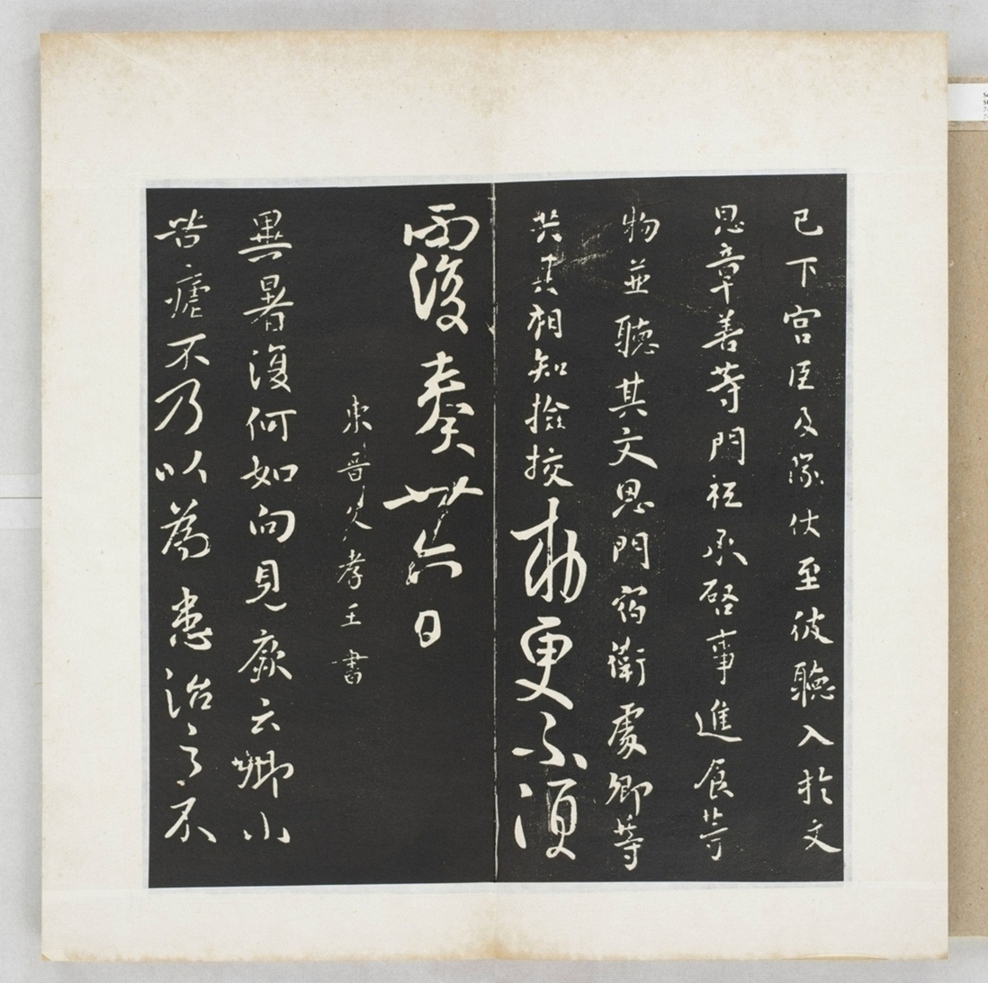 已下宮臣及隊仗至彼聽入於文
思章善等門祗承啓事進食等
物並聽其文思門宿衛處卿等
共其相知撿挍勅更不須
覆奏廿六日
東晉文孝王書
異暑復何如向見厥云卿小
苦瘧不乃以為患治之不